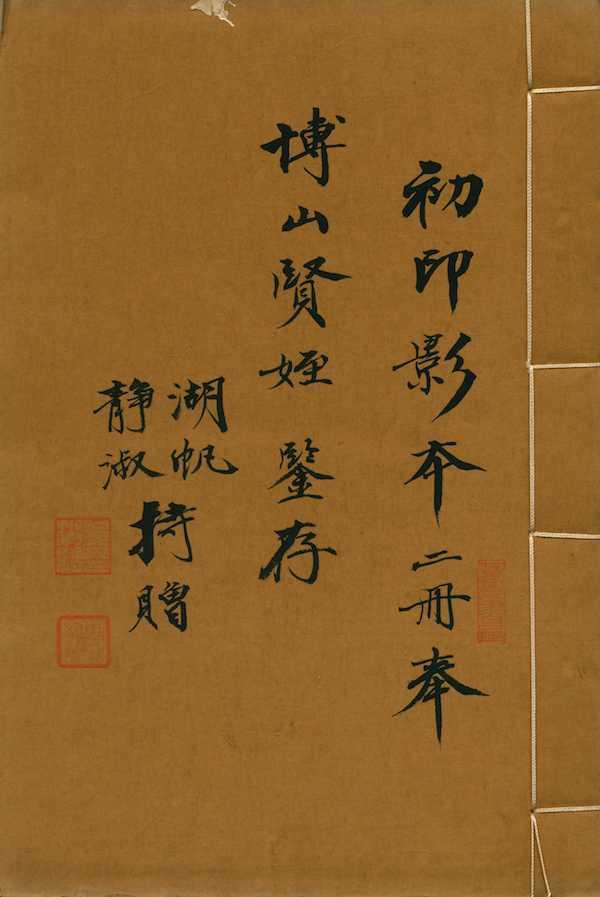 初印影本二冊奉
博山賢姪 鑒存
湖帆
靜淑
持贈